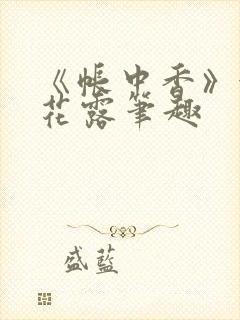 《帐中香》
花露笔趣
盛蓝